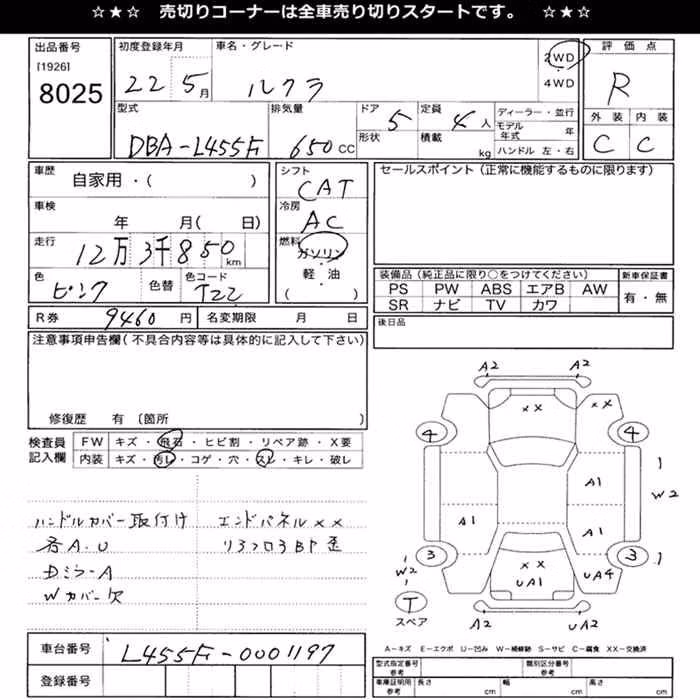 ☆★☆ 売切りコーナーは全車売り切りスタートです。 ☆★☆
出品番号
[1926]
8025
初度登録年月
22 5月
車名・グレード
ルクラ
2WD
・
4WD
評価点
R
外装 内装
C C
型式
DBA-L455F
排気量
650CC
ドア 5
形状
定員 4人
積載 kg
ディーラー・並行
モデル年式 年
ハンドル 左・右
車歴
自家用・( )
車検
年 月( 日)
走行
12万3千850km
色
ピンク
色替
色コード
T22
シフト
CAT
冷房
AC
燃料
ガソリン
・
軽・油
( )
セールスポイント(正常に機能するものに限ります)
装備品(純正品に限り○をつけてください)
PS PW ABS エアB AW
SR ナビ TV カワ
新車保証書
有・無
R券 9460円
名変期限 月 日
後日品
注意事項申告欄(不具合内容等は具体的に記入して下さい)
修復歴 有 〔箇所 〕
検査員
記入欄
FW キズ・飛石・ヒビ割・リペア跡・X要
内装 キズ・汚レ・コゲ・穴・スレ・キレ・破レ
ハンドルカバー取付け
各A.U
Dミラ-A
Wカバー欠
エンドパネルXX
リヤフロアBP歪
A2 A2
XX XX
4 4
A1 1
W2
A1 A1
3 3 1
1
W2
XX
UA1 UA4
T
スペア
A2 UA2
A-キズ E-エクボ U-凹み W-補修跡 S-サビ C-腐食 XX-交換済
車台番号
L455F-0001197
登録番号
型式指定番号
参考
類別区分番号
参考
車庫証明用
参考
長さ cm
幅 cm
高さ cm